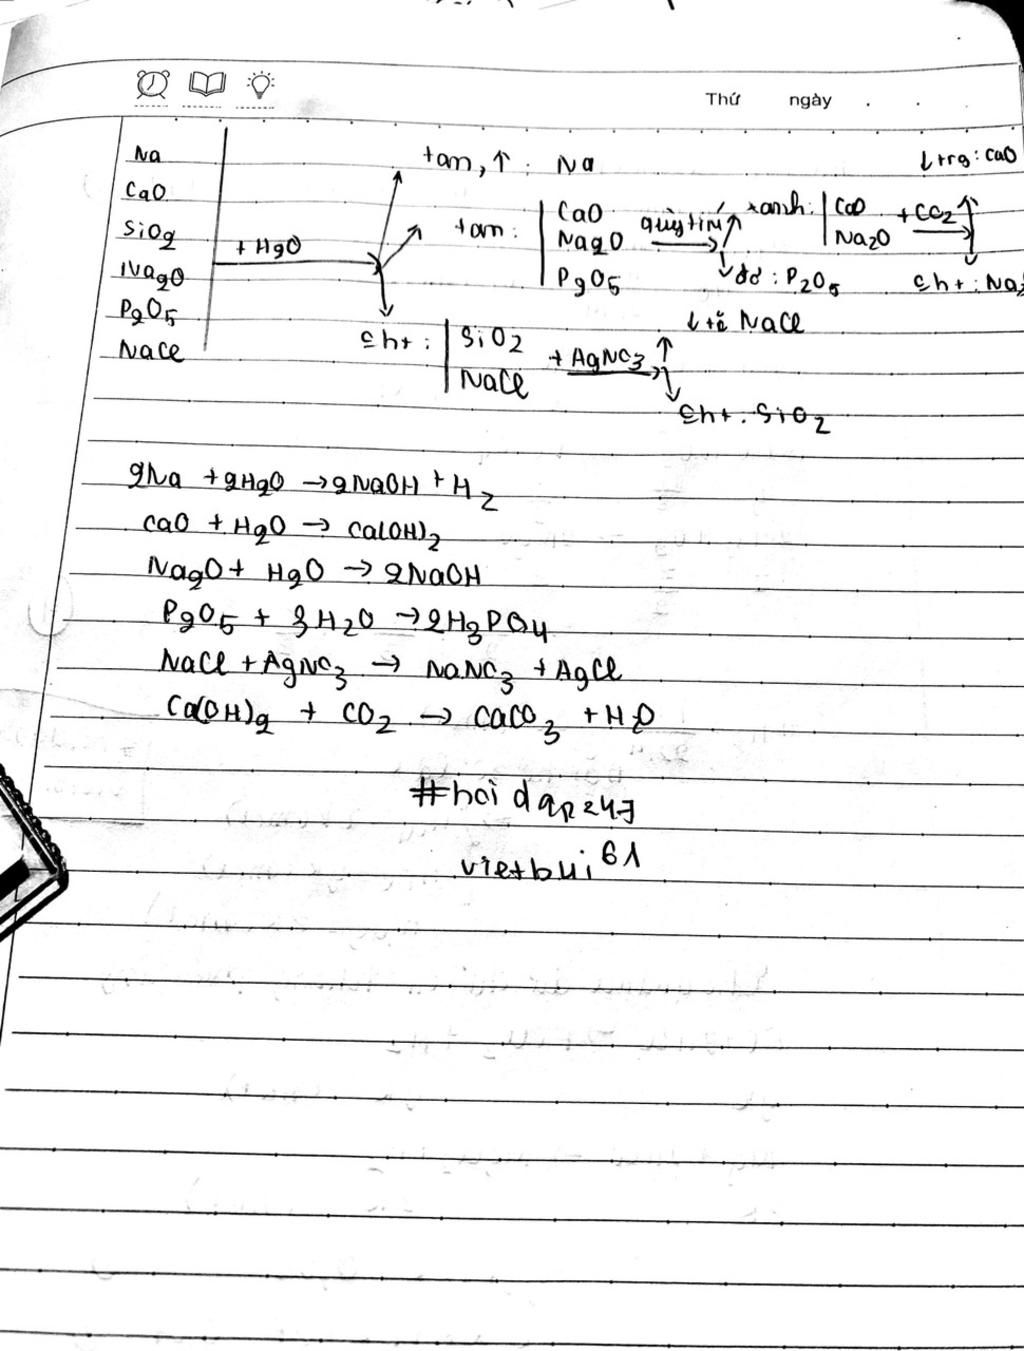 Thứ ngày . . .
Na
CaO
SiO2
Na2O
P2O5
NaCl
+ H2O
tan, ↑ : Na
tan : CaO
Na2O
P2O5
quỳ tím
xanh : CaO
Na2O
+ CO2
↓ trg : CaO
đỏ : P2O5
↓ tủ NaCl
SiO2
NaCl
+ AgNO3
SiO2
2Na + 2H2O → 2NaOH + H2
CaO + H2O → Ca(OH)2
Na2O + H2O → 2NaOH
P2O5 + 3H2O → 2H3PO4
NaCl + AgNO3 → NaNO3 + AgCl
Ca(OH)2 + CO2 → CaCO3 + H2O
#hoidap247
vietbui61